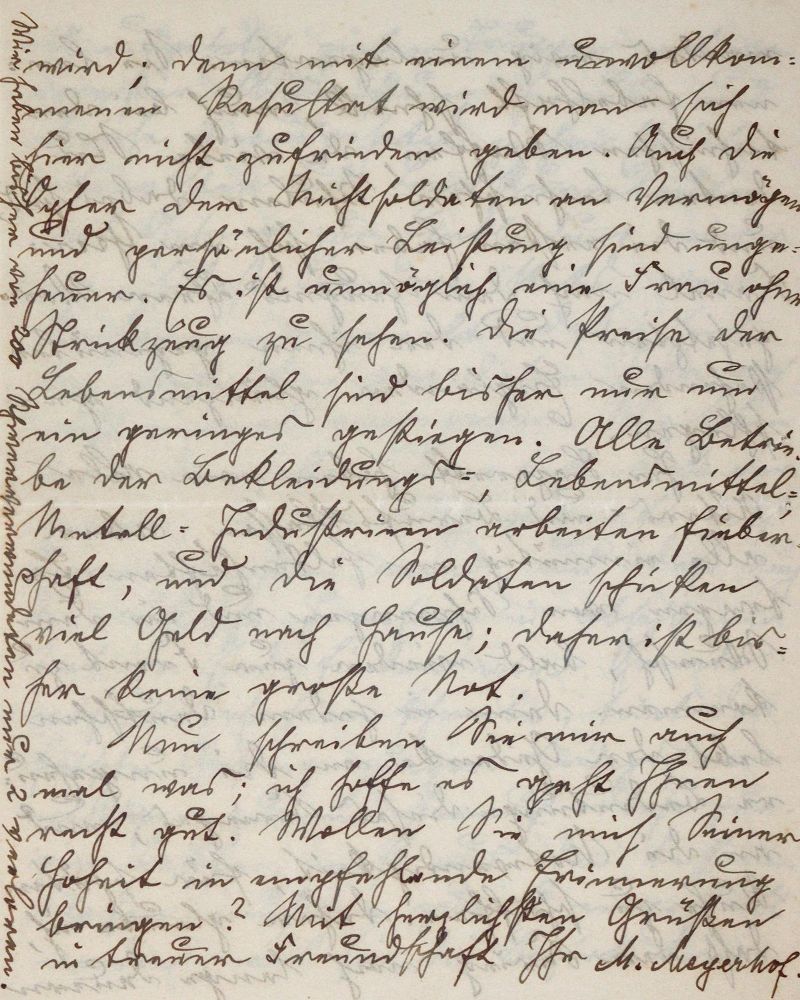 wird; denn mit einem unvollkom=
menen Resultat wird man sich
hier nicht zufrieden geben. Auch die
Opfer der Nichtsoldaten an Vermögen
und persönlicher Leistung sind unge=
heuer. Es ist unmöglich eine Frau ohne
Strickzeug zu sehen. Die Preise der
Lebensmittel sind bisher nur um
ein geringes gestiegen. Alle Betrie=
be der Bekleidungs=, Lebensmittel=,
Metall=Industrieen arbeiten fieber=
haft, und die Soldaten schicken
viel Geld nach Hause; daher ist bis=
her keine große Not.
Nun schreiben Sie mir auch
mal was; ich hoffe es geht Ihnen
recht gut. Wollen Sie mich Seiner
Hoheit in empfehlende Erinnerung
bringen? Mit herzlichsten Grüßen
in treuer Freundschaft Ihr M. Meyerhof.
Wir haben bisher von 200 verloren.